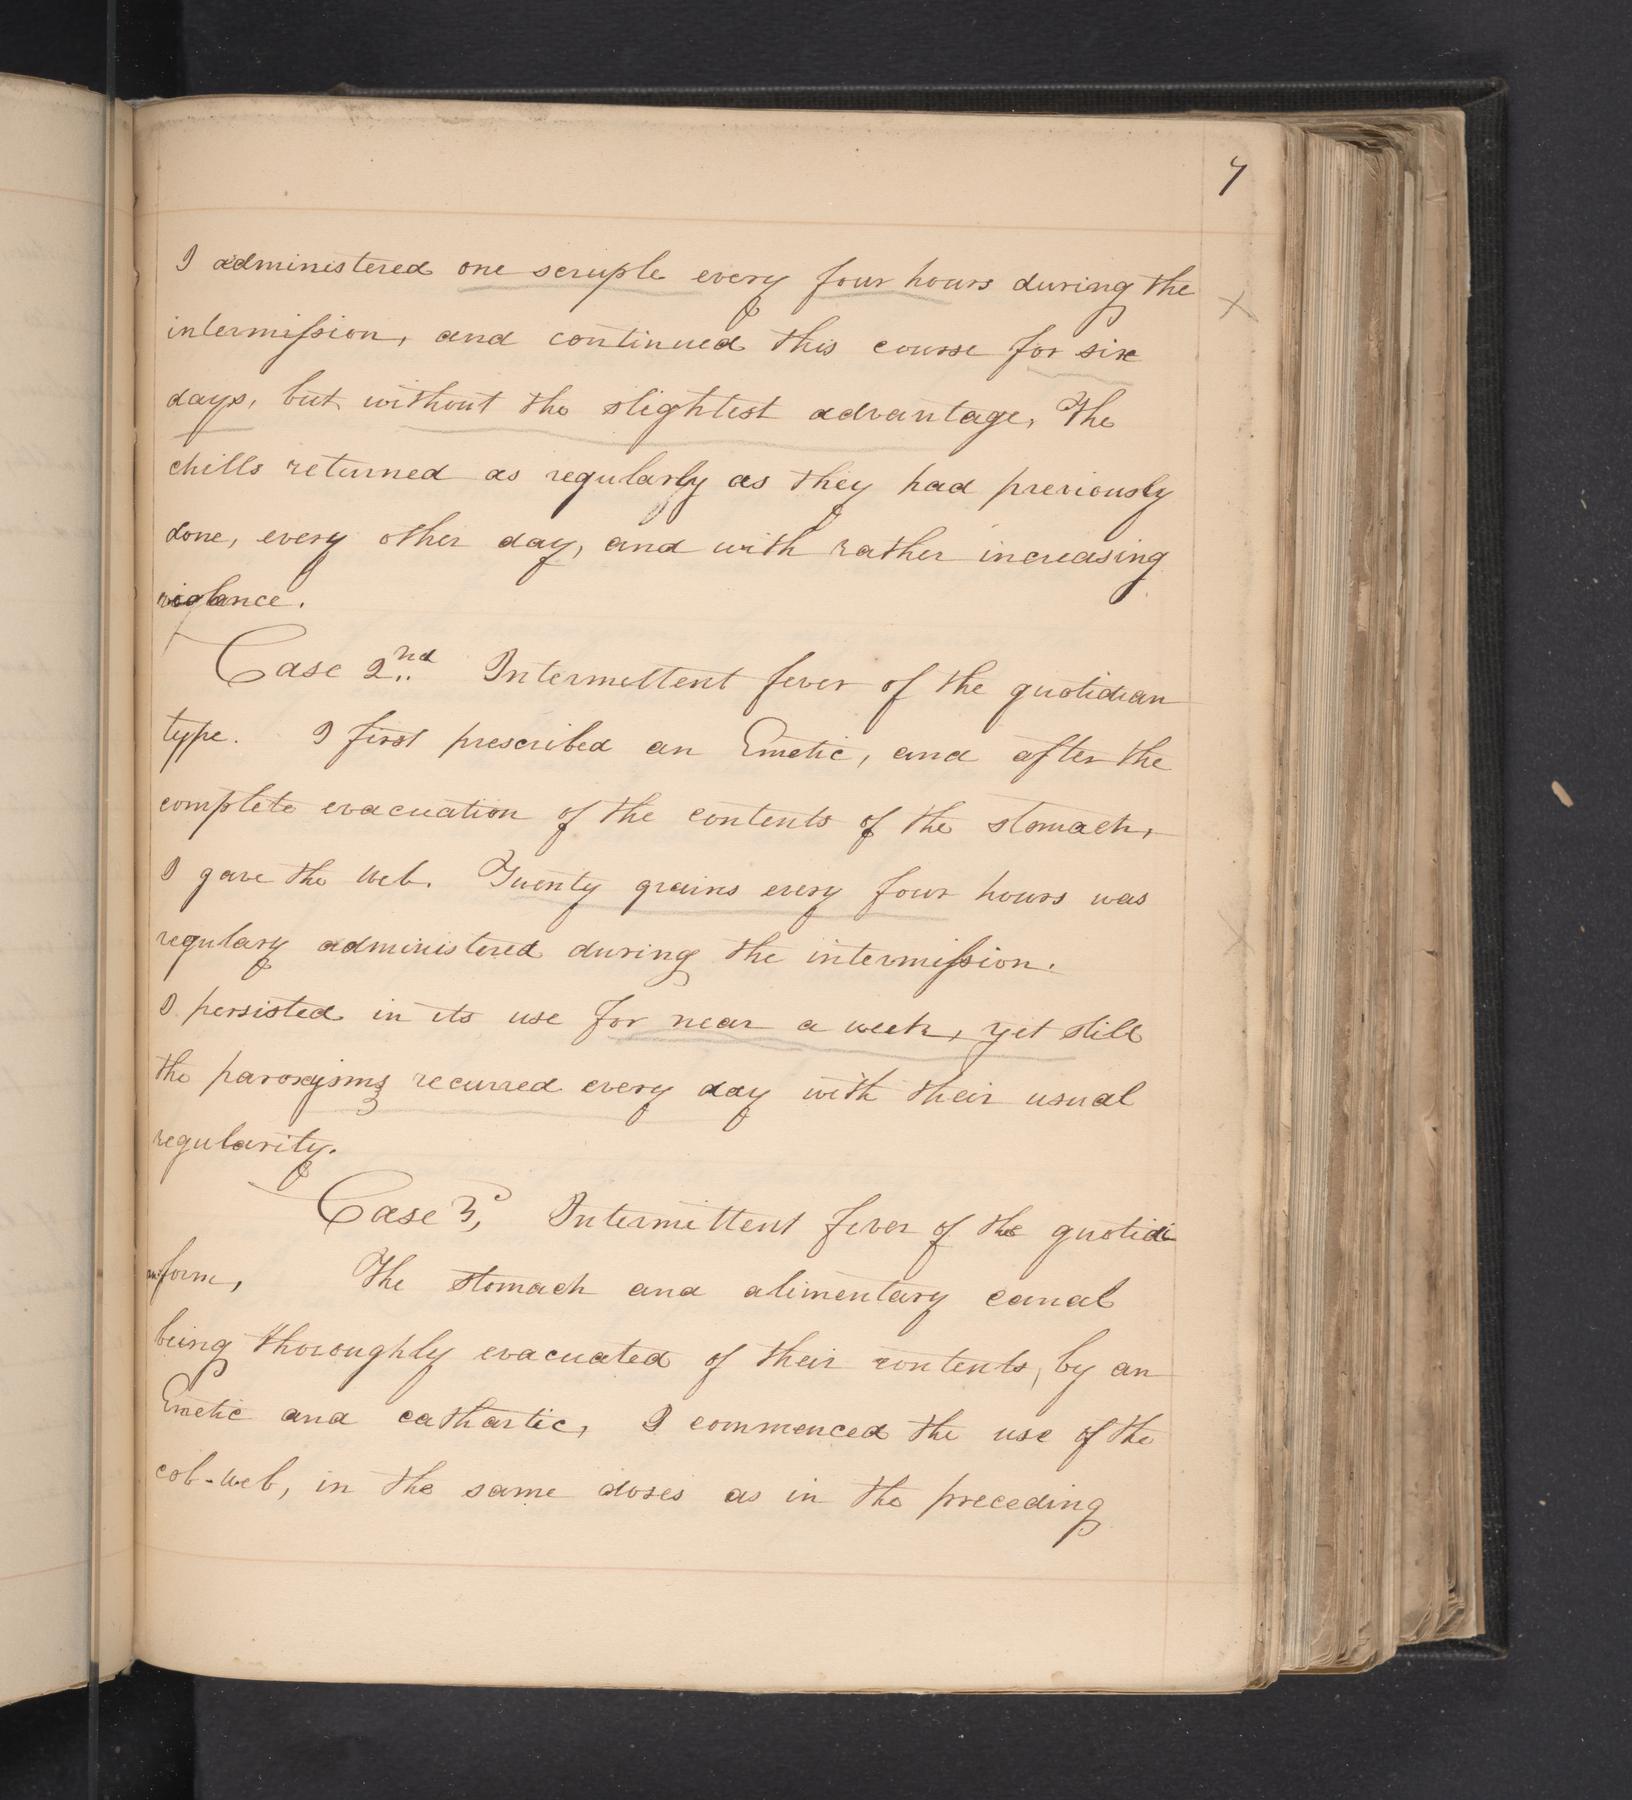 7
I administered one scruple every four hours during the
intermission, and continued this course for six
days, but without the slightest advantage, The
chills returned as regularly as they had previously
done, every other day, and with rather increasing
violence.
Case 2nd Intermittent fever of the quotidian
type. I first prescribed an Emetic, and after the
complete evacuation of the contents of the stomach,
I gave the web. Twenty grains every four hours was
regulary administered during the intermission.
I persisted in its use for near a week, yet still
the paroxysms recurred every day with their usual
regularity.
Case 3, Intermittent fever of the quotidi
an form, The stomach and alimentary canal
being thoroughly evacuated of their contents, by an
Emetic and cathartic, I commenced the use of the
cob-web, in the same doses as in the preceding